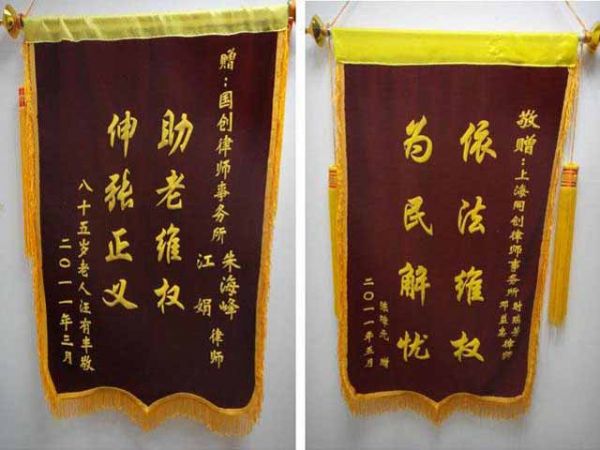 赠：国创律师事务所
朱海峰
江娟 律师
助老维权
伸张正义
八十五岁老人汪有丰敬
二〇一一年三月
敬赠：上海同创律师事务所
律师
依法维权
为民解忧
赠
二〇一一年五月